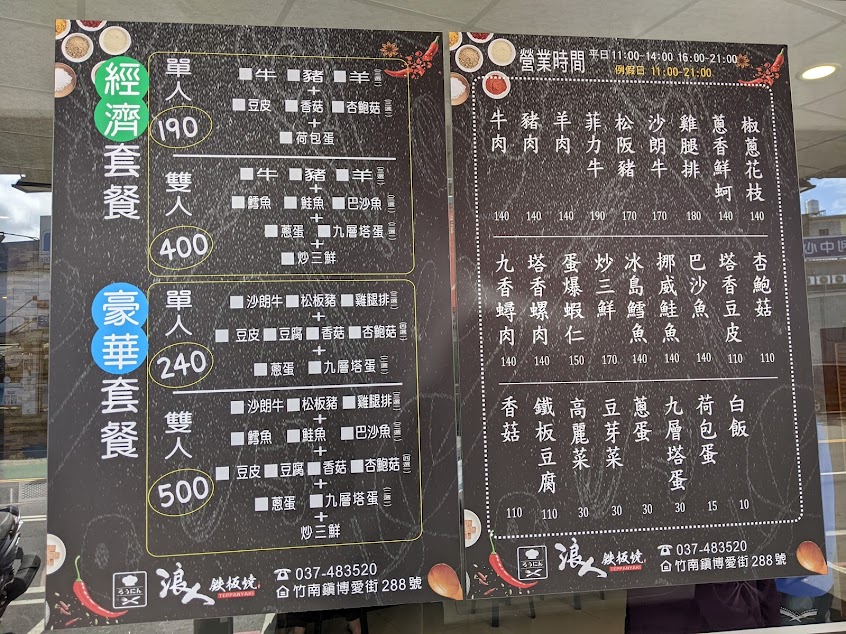 經濟套餐
單人
190
牛 豬 羊(三選一)
+
豆皮 香菇 杏鮑菇
+
荷包蛋
雙人
400
牛 豬 羊
+
鱈魚 鮭魚 巴沙魚
+
蔥蛋 九層塔蛋
+
炒三鮮
豪華套餐
單人
240
沙朗牛 松板豬 雞腿排
+
豆皮 豆腐 香菇 杏鮑菇
+
蔥蛋 九層塔蛋
雙人
500
沙朗牛 松板豬 雞腿排
+
鱈魚 鮭魚 巴沙魚
+
豆皮 豆腐 香菇 杏鮑菇
+
蔥蛋 九層塔蛋
+
炒三鮮
ろうにん
浪人 鉄板燒
TEPPANYAKI
037-483520
竹南鎮博愛街288號
營業時間 平日 11:00-14:00 16:00-21:00
例假日 11:00-21:00
牛肉 140
豬肉 140
羊肉 140
菲力牛 190
松阪豬 170
沙朗牛 170
雞腿排 180
蔥香鮮蚵 140
椒蔥花枝 140
九香蟳肉 140
塔香螺肉 140
蛋爆蝦仁 150
炒三鮮 170
冰島鱈魚 140
挪威鮭魚 140
巴沙魚 140
塔香豆皮 110
杏鮑菇 110
香菇 110
鐵板豆腐 110
高麗菜 30
豆芽菜 30
蔥蛋 30
九層塔蛋 30
荷包蛋 15
白飯 10
ろうにん
浪人 鉄板燒
TEPPANYAKI
037-483520
竹南鎮博愛街288號